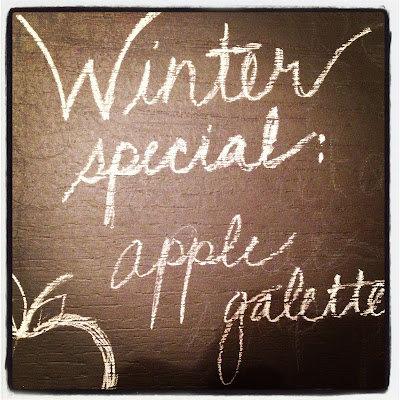 Winter
special:
apple
galette